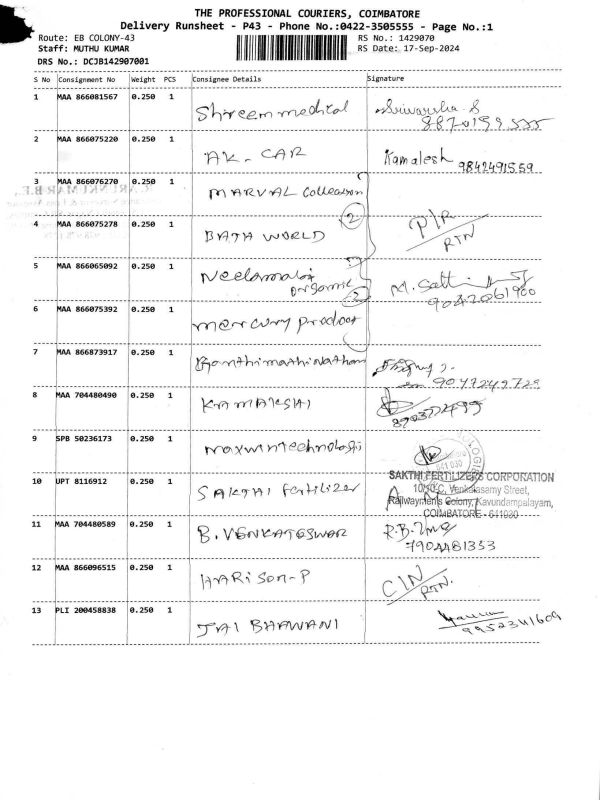 THE PROFESSIONAL COURIERS, COIMBATORE
Delivery Runsheet - P43 - Phone No.:0422-3505555 - Page No.:1
Route: EB COLONY-43
RS No.: 1429070
Staff: MUTHU KUMAR
RS Date: 17-Sep-2024
DRS No.: DCJB142907001
S No Consignment No Weight PCS Consignee Details Signature
1 MAA 866081567 0.250 1 Shreem medical
2 MAA 866075220 0.250 1 AK-CAR Kamalesh 9842491559
3 MAA 866076270 0.250 1 MARVAL
4 MAA 866075278 0.250 1 BATA WORLD P/R
2
RTN
5 MAA 866065092 0.250 1
organic 9042061900
2
6 MAA 866075392 0.250 1 mercury product
7 MAA 866873917 0.250 1 Ganthimathinathan
8 MAA 704480490 0.250 1 KAMAKSHI
9 SPB 50236173 0.250 1
10 UPT 8116912 0.250 1 SAKTHI Fertilizer
SAKTHI FERTILIZERS CORPORATION
10/10-C, Venkatasamy Street,
Railwaymen's Colony, Kavundampalayam,
COIMBATORE - 641030
11 MAA 704480589 0.250 1 B. VENKATESWAR
7904481353
12 MAA 866096515 0.250 1 HARISON-P C/N
RTN.
13 PLI 200458838 0.250 1 JAI BHAWANI
9952341609